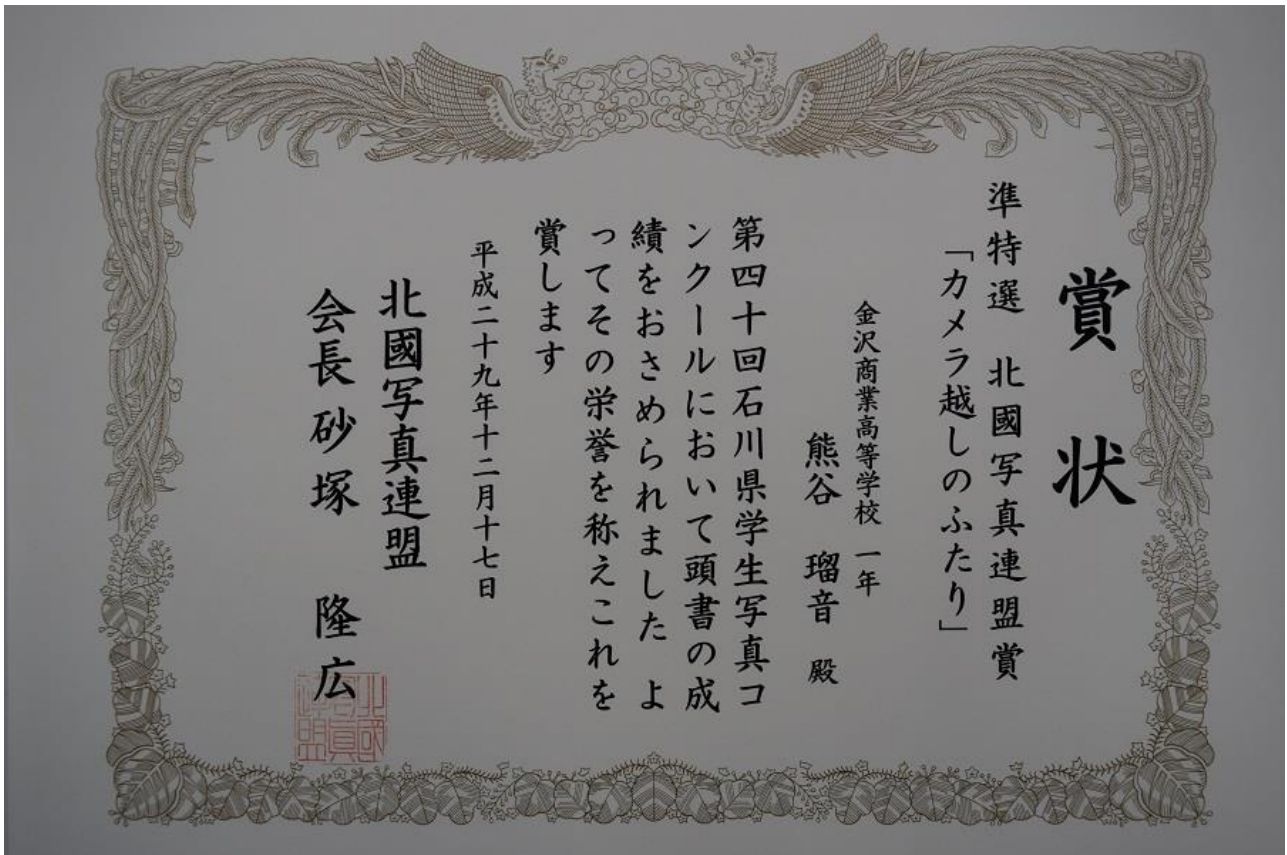 賞状
準特選 北國写真連盟賞
「カメラ越しのふたり」
金沢商業高等学校 一年
熊谷 瑠音 殿
第四十回石川県学生写真コ
ンクールにおいて頭書の成
績をおさめられました よ
ってその栄誉を称えこれを
賞します
平成二十九年十二月十七日
北國写真連盟
会長 砂塚 隆広
北國
写真
連盟